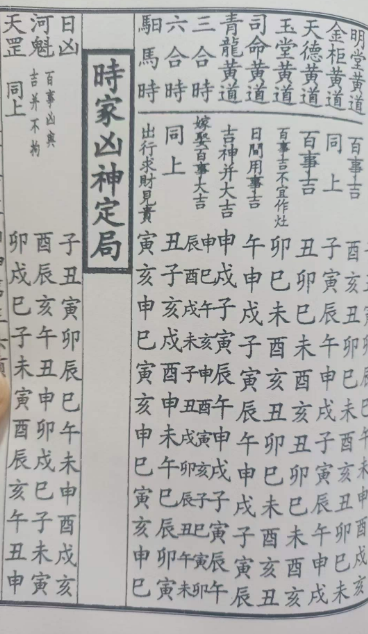 明堂黃道 百事吉 酉亥丑卯巳未酉亥丑卯巳未
金柜黃道 同上 子寅辰午申戌子寅辰午申戌
天德黃道 百事吉 丑卯巳未酉亥丑卯巳未酉亥
玉堂黃道 百事吉不宜作灶 卯巳未酉亥丑卯巳未酉亥丑
司命黃道 日間用事吉 午申戌子寅辰午申戌子寅辰
青龍黃道 吉神并大吉 申戌子寅辰午申戌子寅辰午
三合時 嫁娶百事大吉 申辰 巳酉 午戌 亥未 申子 酉丑 寅戌 亥卯 子辰 巳丑 寅午 卯未
六合時 同上 丑子亥戌酉申未午巳辰卯寅
馹馬時 出行求財見貴 寅亥申巳寅亥申巳寅亥申巳
時家凶神定局
日凶 子丑寅卯辰巳午未申酉戌亥
河魁 百事凶與吉并不拘 酉辰亥午丑申卯戌巳子未寅
天罡 同上 卯戌巳子未寅酉辰亥午丑申